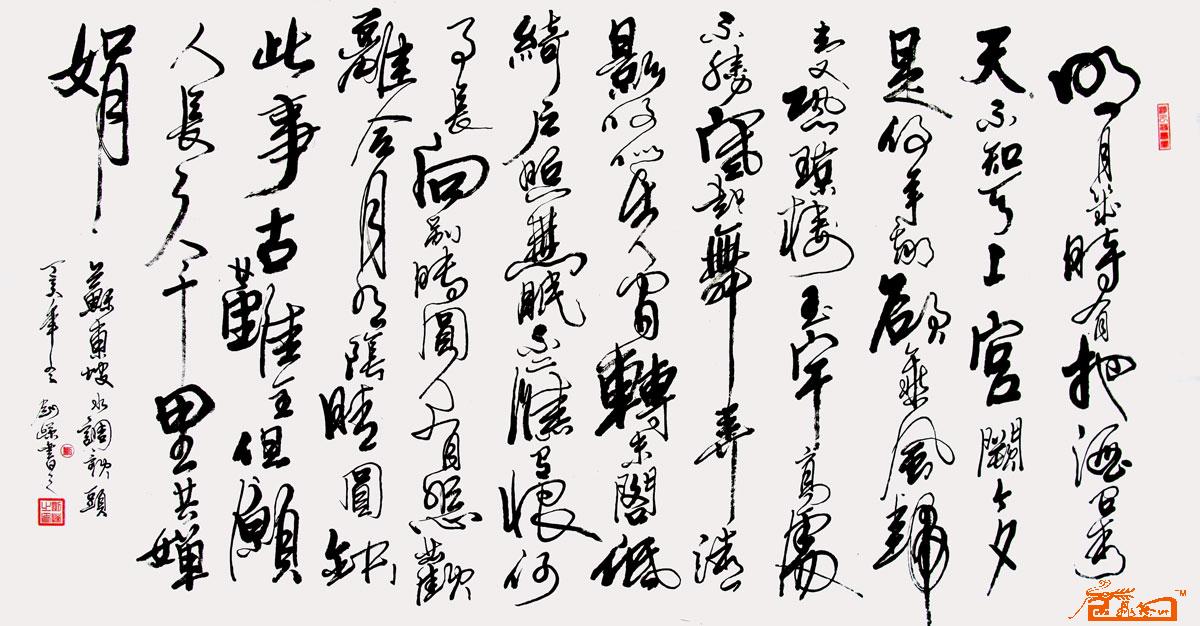 明月幾時有把酒問青
天不知天上宮闕今夕
是何年我欲乘風歸
去又恐瓊樓玉宇高處
不勝寒起舞弄清
影何似在人間轉朱閣低
綺户照無眠不應有恨何
事長向別時圓人有悲歡
離合月有陰晴圓缺
此事古難全但願
人長久千里共嬋
娟
蘇東坡水調歌頭
丁亥年冬書之